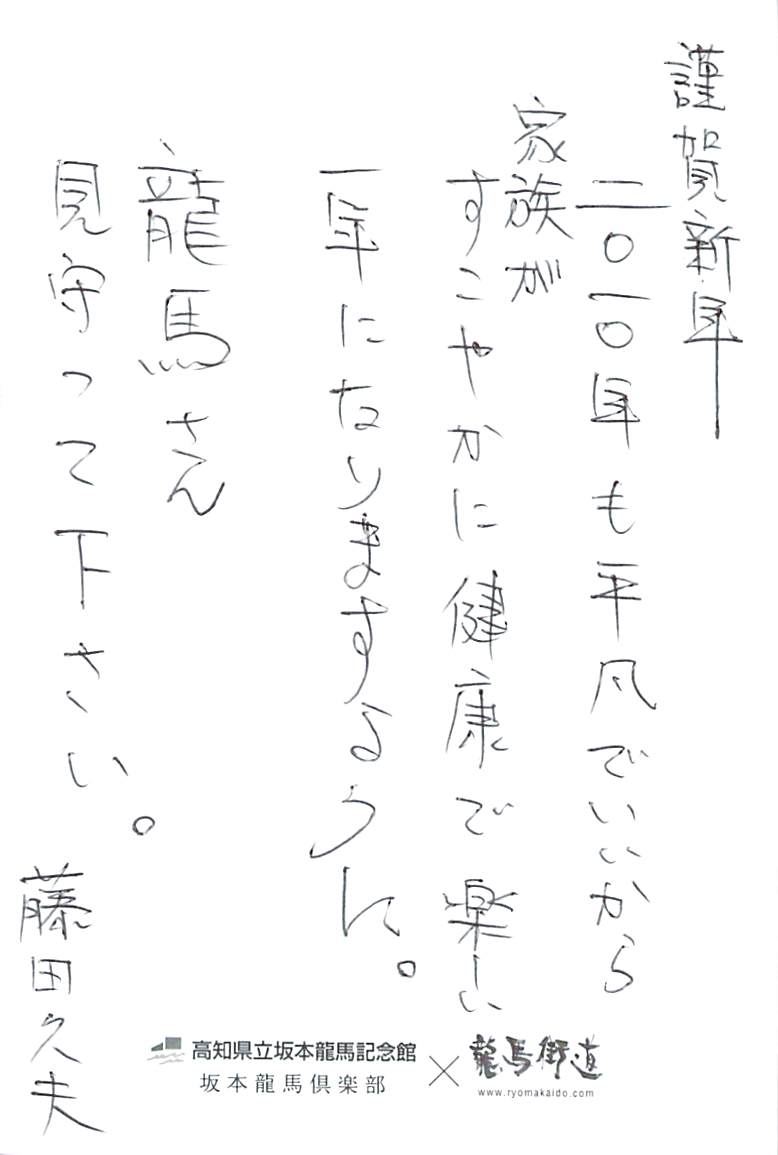 謹賀新年
二〇一〇年も平凡でいいから
家族が
すこやかに健康で楽しい
一年になりますように。
龍馬さん
見守って下さい。
藤田久夫
高知県立坂本龍馬記念館
坂本龍馬倶楽部
×
龍馬街道
www.ryomakaido.com